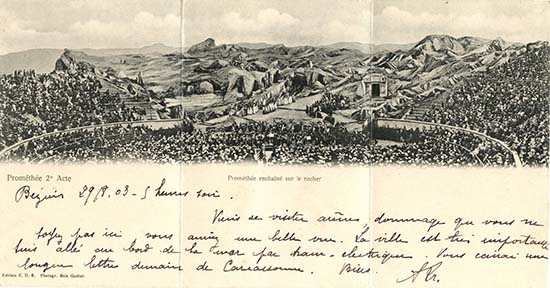 Prométhée 2e Acte
Prométhée enchaîné sur le rocher
Béziers 29/8.03 - 5 heures soir.
Viens de visiter arènes, dommage que vous ne
soyez pas ici vous auriez une belle vue. La ville est très importante
suis allé au bord de la mer par tram-électrique. Vous écrirai une
longue lettre demain de Carcassonne.
Edition E. D. R. Photogr.